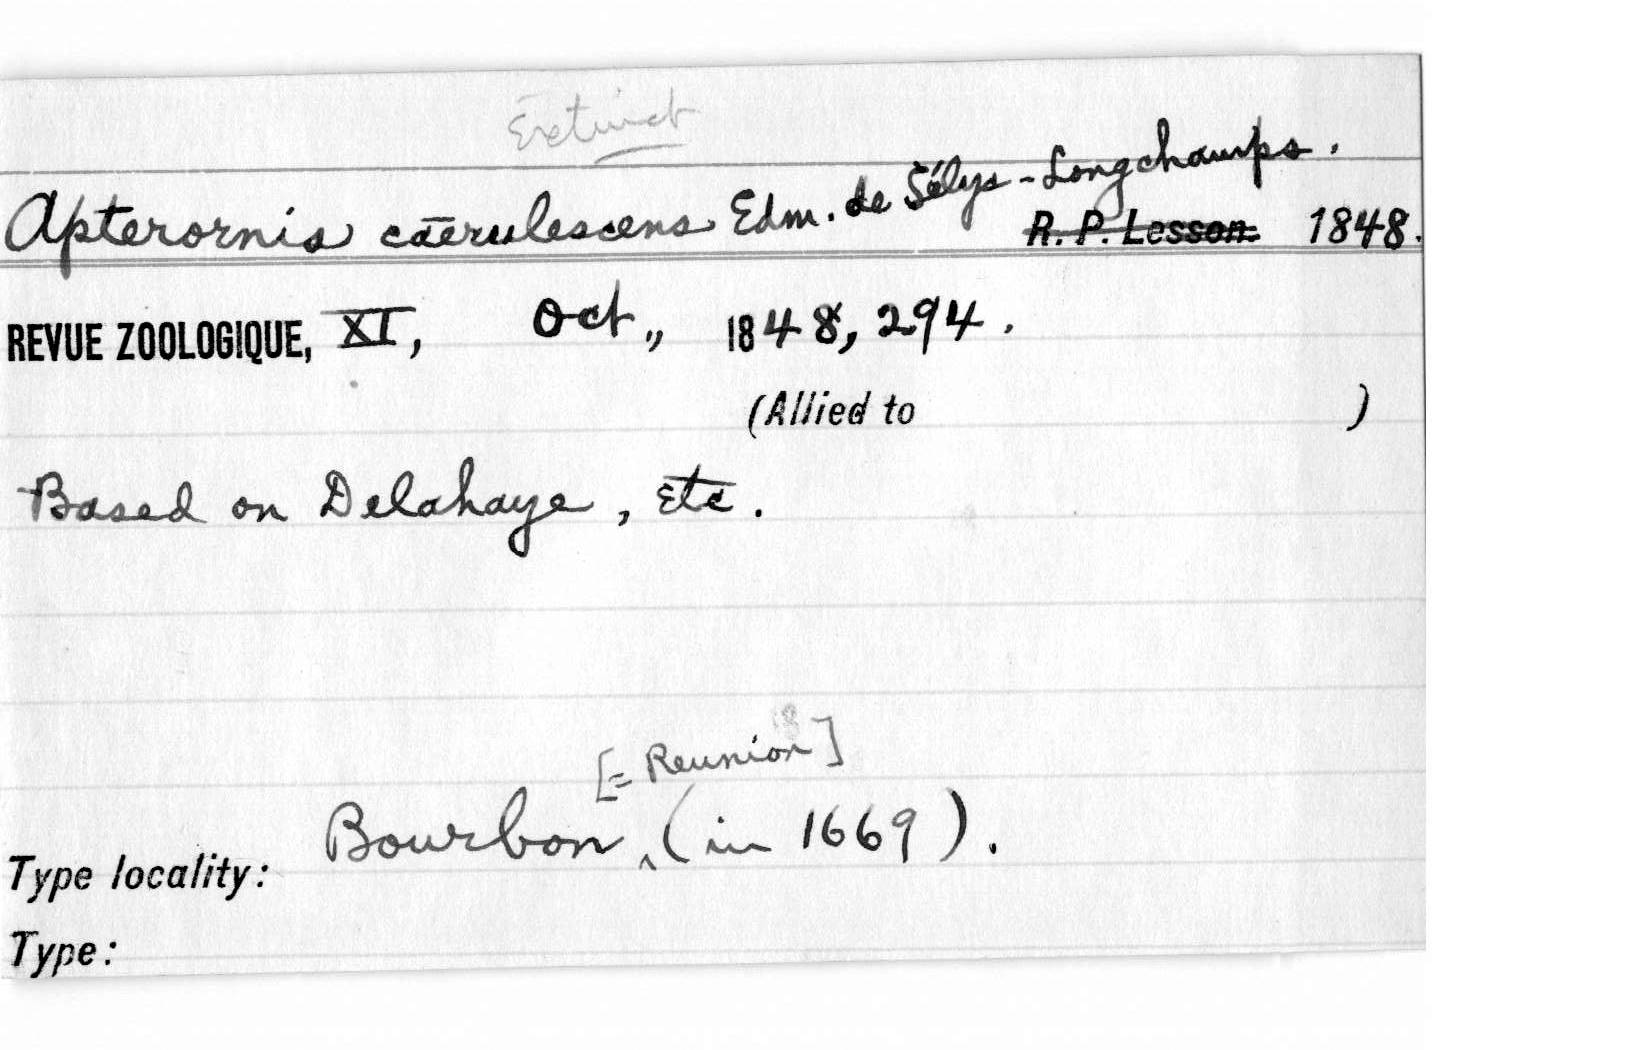 Extinct
Apterornis cæerulescens Edm. de Sélys-Longchamps.
R. P. Lesson. 1848.
REVUE ZOOLOGIQUE, XI, Oct., 1848, 294.
(Allied to )
Based on Delahaye, etc.
[= Reunion]
Type locality: Bourbon ‸ (in 1669).
Type: